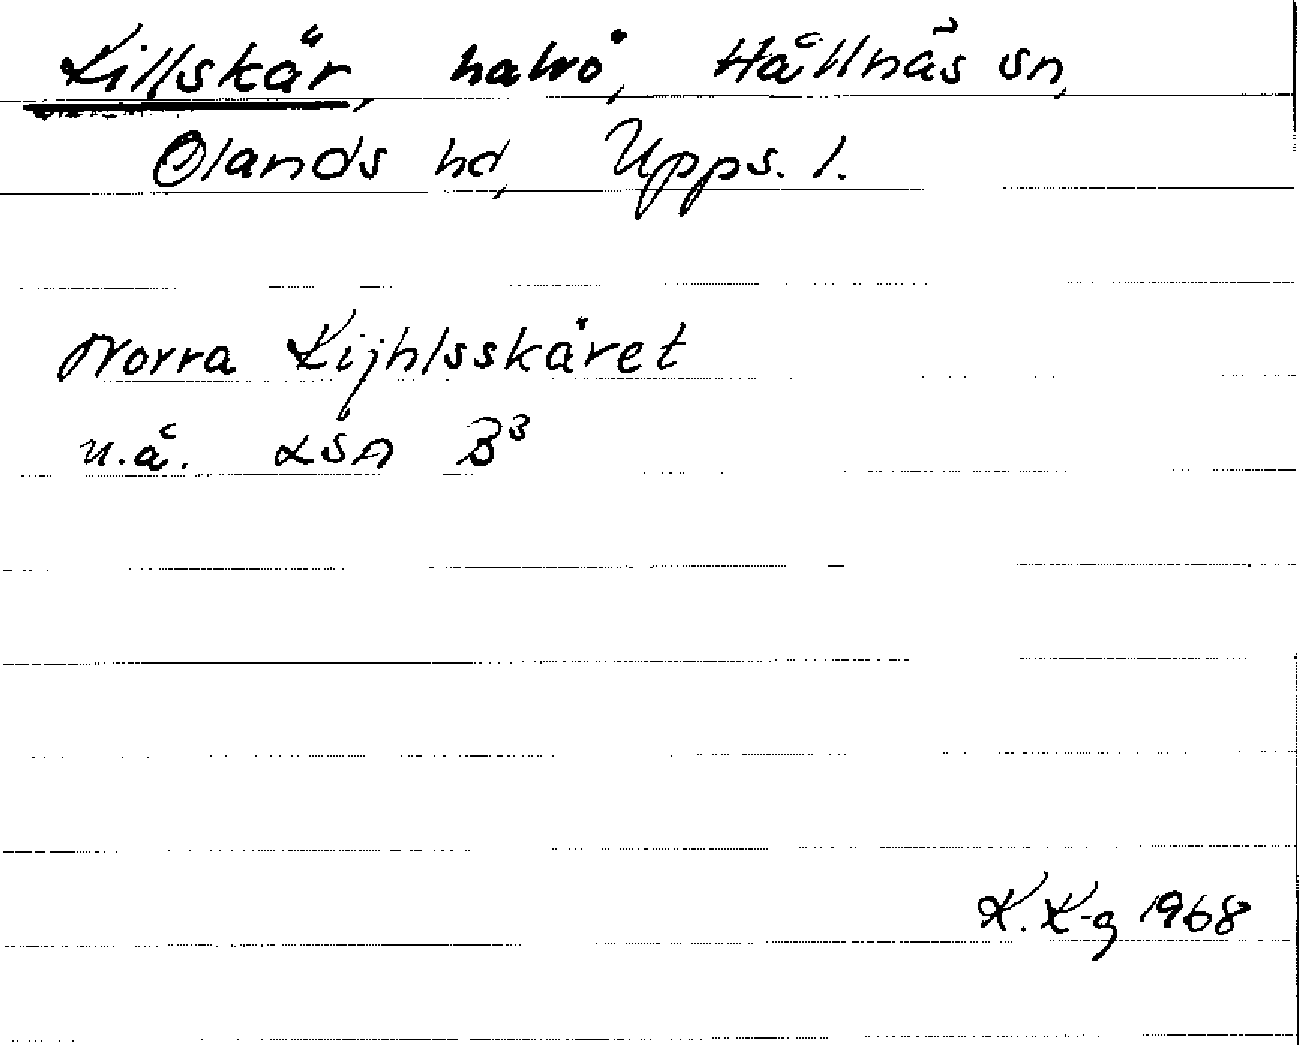 Killskär, halvö, Hållnäs sn,
Olands hd, Upps. l.
Norra Kijhlsskäret
u.å. LSA B³
K. K-g 1968